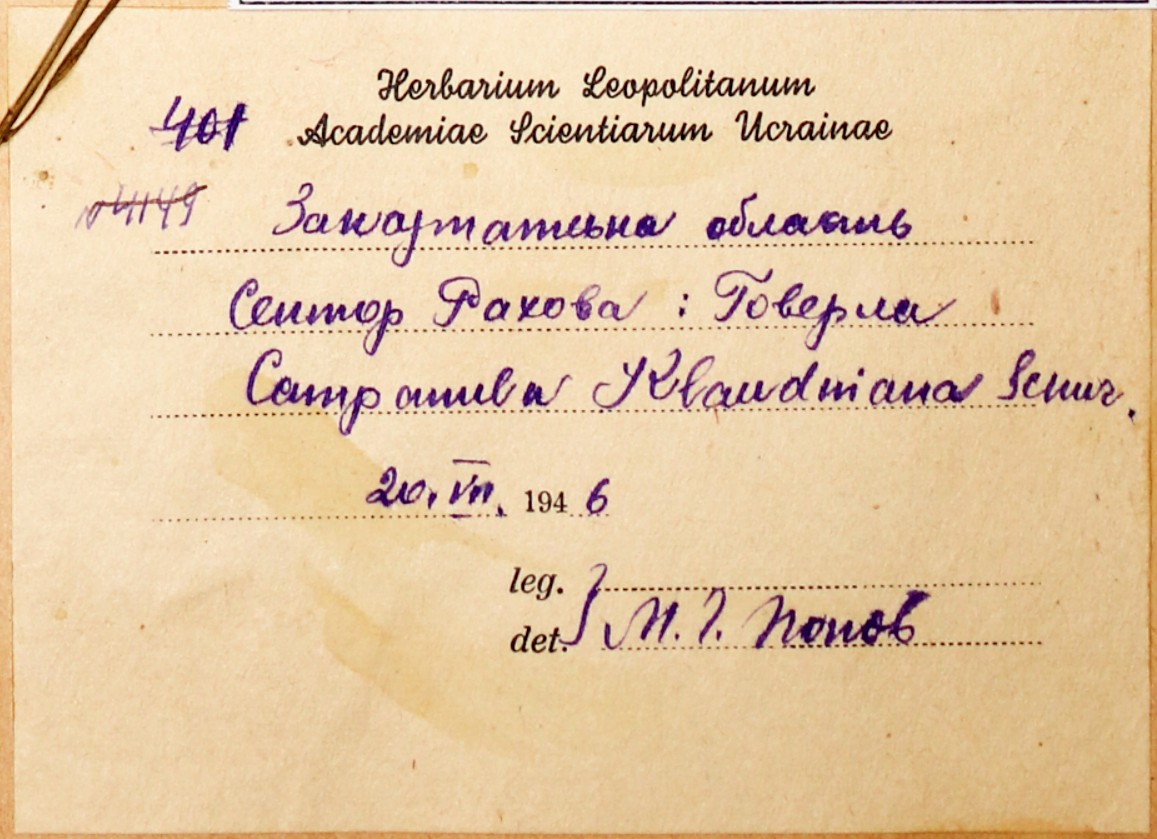 Herbarium Leopolitanum
401 Academiae Scientiarum Ucrainae
№4149
Закарпатська область
Сектор Рахова : Говерла
Campanula Kladniana Schur.
20. VII. 1946
leg.
det. М. Г. Попов